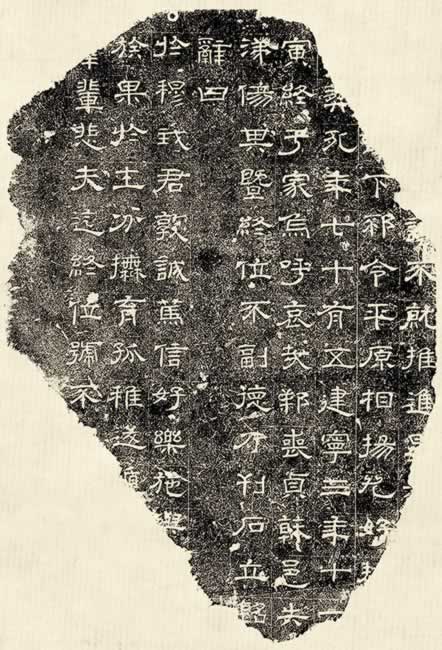 不就推進
下邳令平原相揚兗
死年七十有五建寧三年十一
寅終于家烏呼哀哉郡喪貞榦邑失
涕傷 暨終位不副德乃刊石立銘
辭曰
於穆我君敦誠篤信好樂施與
於果於 育孤稚
輩悲夫迄終位號不